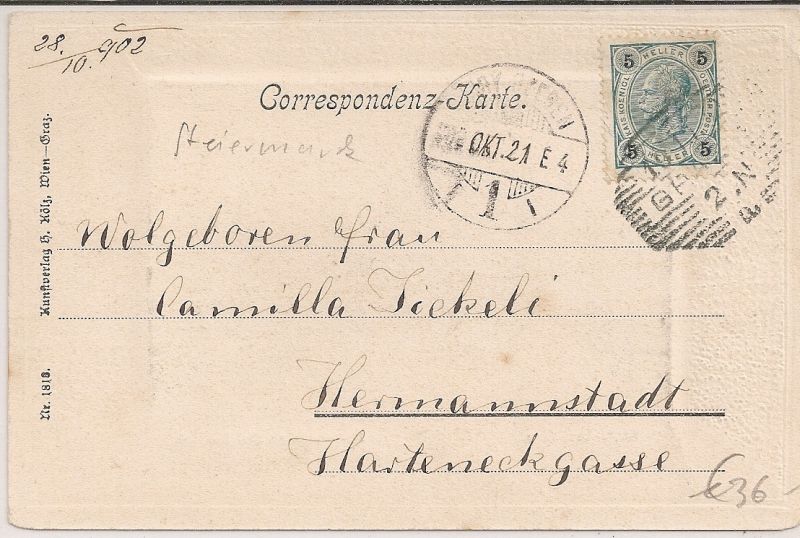 28.
10. 902
Correspondenz-Karte.
Steiermark
OKT. 21 E 4
1
5 HELLER 5
5 HELLER 5
Wolgeboren Frau
Camilla Jickeli
Hermannstadt
Harteneckgasse
Kunstverlag H. Kölz, Wien—Graz.
Nr. 1818.
€36